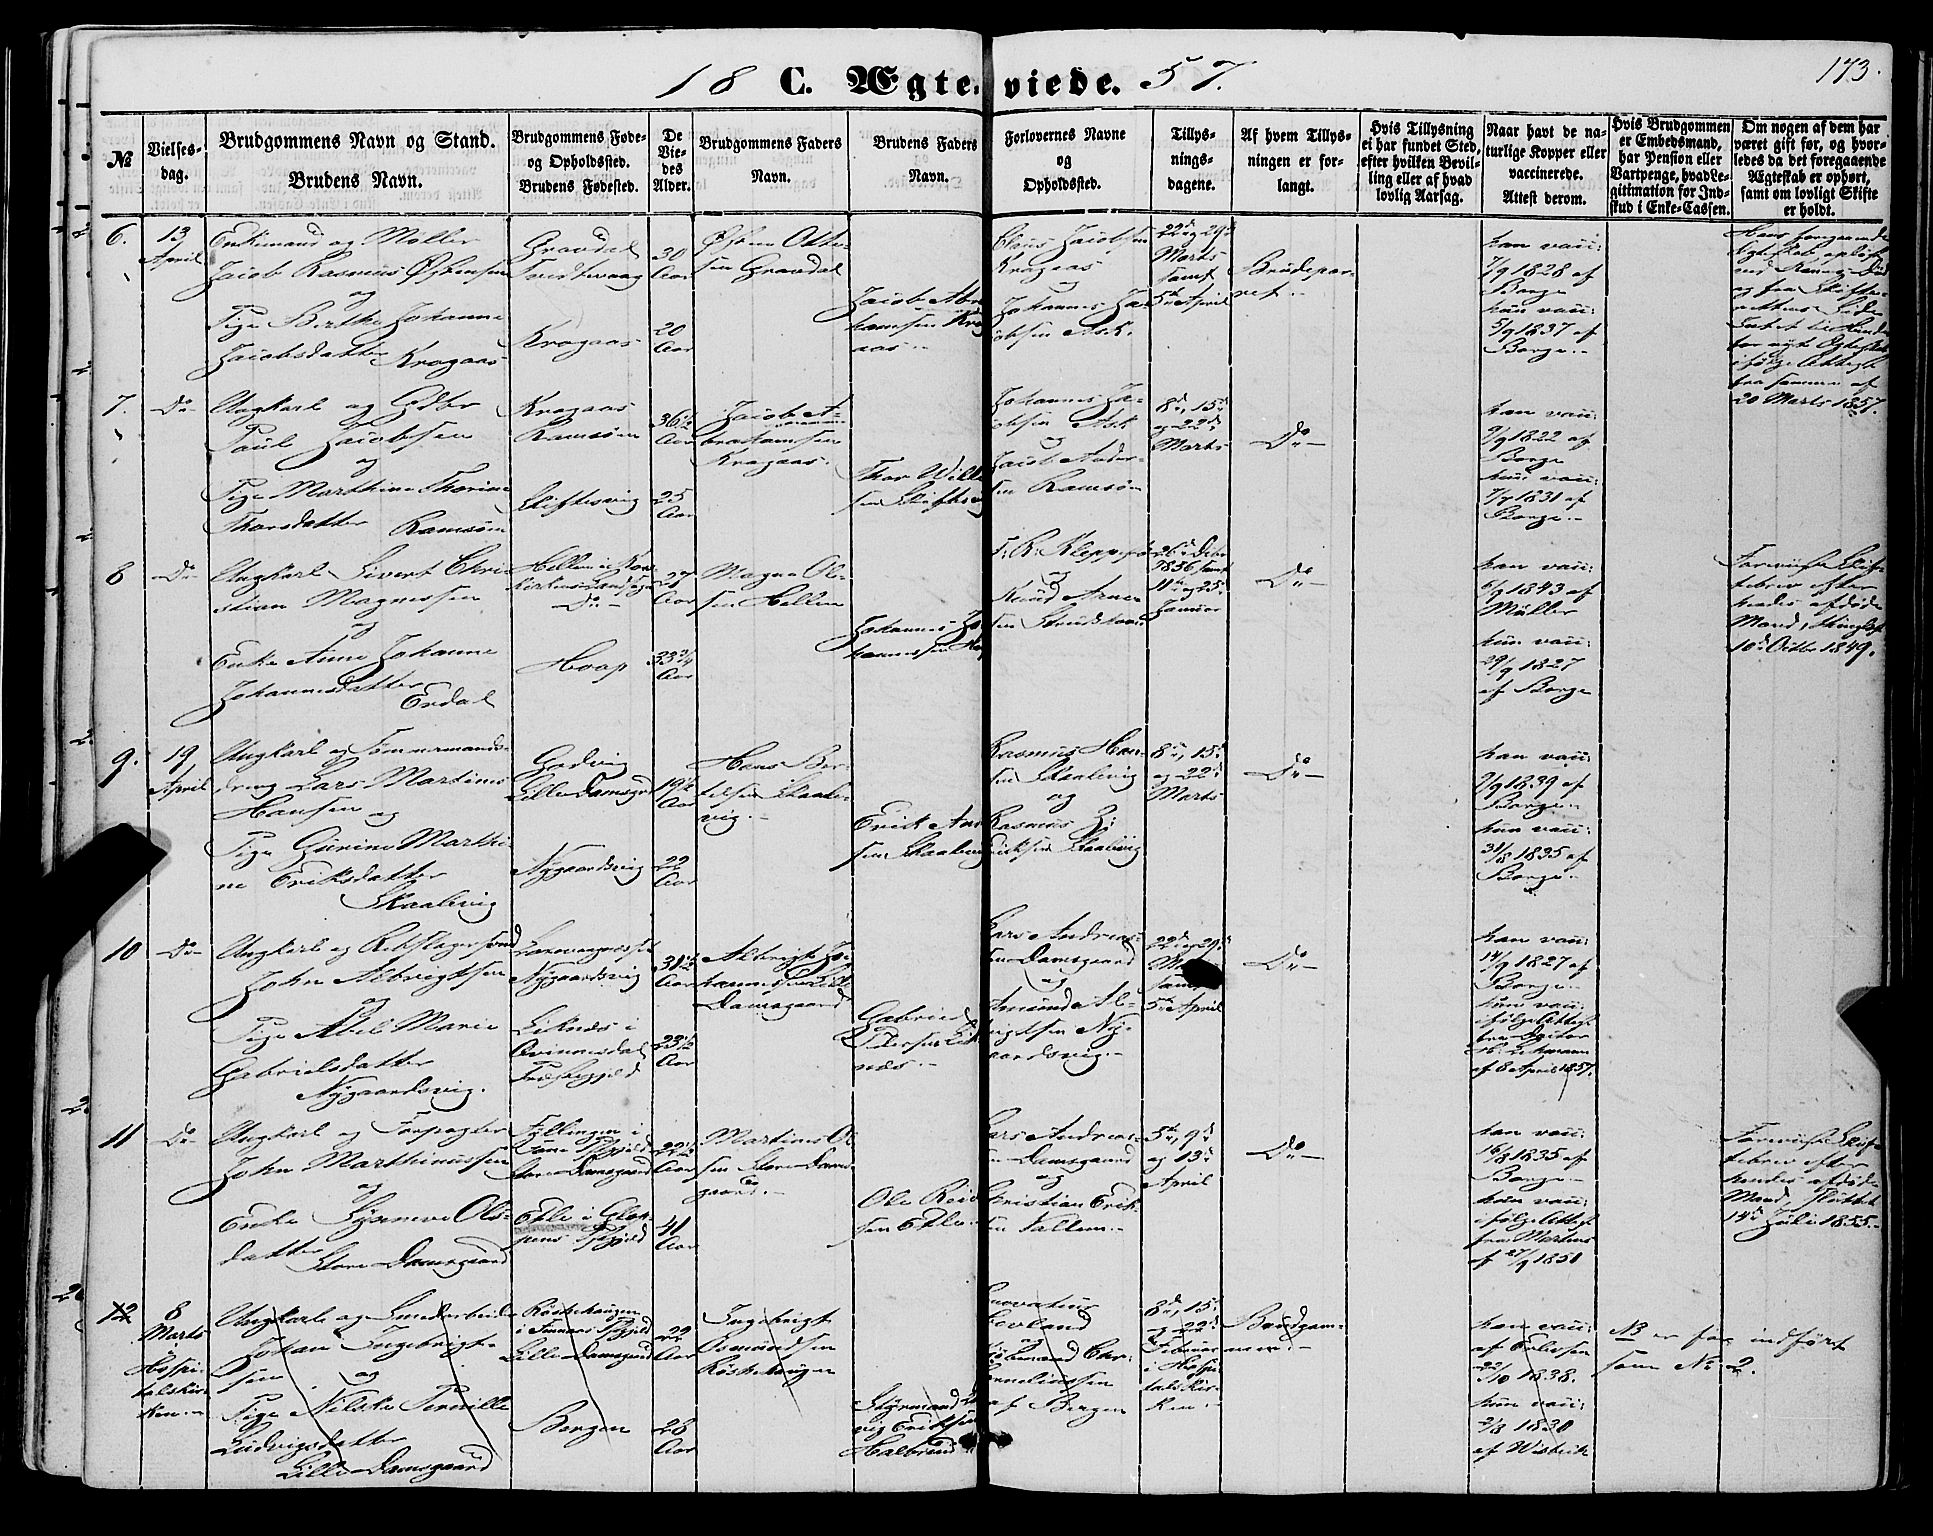 18 C. Ægteviede. 57.
173.
№
Vielses-
dag.
Brudgommens Navn og Stand.
Brudens Navn.
Brudgommens Føde-
og Opholdssted.
Brudens Fødested.
De
Vie-
des
Alder.
Brudgommens Faders
Navn.
Brudens Faders
Navn.
Forlovernes Navne
og
Opholdssted.
Tillys-
nings-
dagene.
Af hvem Tillys-
ningen er for-
langt.
Hvis Tillysning
ei har fundet Sted,
efter hvilken Bevil-
ling eller af hvad
lovlig Aarsag.
Naar havt de na-
turlige Kopper eller
vaccinerede.
Attest derom.
Hvis Brudgommen
er Embedsmand,
har Pension eller
Vartpenge, hvad Le-
gitimation for Ind-
skud i Enke-Cassen.
Om nogen af dem har
været gift før, og hvor-
ledes da det foregaaende
Ægteskab er ophørt,
samt om lovligt Skifte
er holdt.
6.
13
April
Enkemand og Møller
Jacob Rasmus Østensen
og
Pige Berthe Johanne
Jacobsdatter Kragaas
Gravdal
Kragaas
30
Aar
20
Aar
Østen Otte-
sen Gravdal
Jacob Abra
hamsen Krag
aas.-
Claus Jacobsen
Kragaas
og
Johannes Ja-
cobsen Ask.
22d og 29d
Marts
samt
5te April
Brudepar-
ret.-
han vacc:
7/9 1828 af
Borge
hun vacc:
5/9 1837 af
Borge.-
Hans foregaaende
20 Marts 1857.
7.
Do-
Ungkarl og
Poul Jacobsen
og
Pige Marthine Thorine
Thorsdatter Ramsøen
Kragaas
Ramsøen
36½
Aar
25
Aar
Jacob A-
brahamsen
Kragaas.
Thor Wille
sen
Johannes Ja-
cobsen Ask
og
Jacob Ander-
sen Ramsøen
8d, 15d
og 22d
Marts
Do-
han vacc:
9/9 1822 af
Borge
hun vacc:
7/7 1831 af
Borge.-
8
Do-
Ungkarl Sivert Chri-
stian Magnessen
og
Enke Anne Johanne
Johannesdatter
Erdal
Do-
Hoop
27
Aar
33¾
Aar
Magne Ol-
sen Hellen
Johannes Jo
hannessen
og
Knud Arne-
sen
26d Debr
1856 samt
11te og 25d
Januar
Do-
han vacc:
6/9 1843 af
Müller
hun vacc:
29/9 1827
af Borge
Foreviist Skif-
tebrev efter
hendes afdøde
Mand,
10d Octbr 1849.
9.
19
April
Ungkarl og Tømmermands-
dreng Lars Martinus
Hansen og
Pige Gurine Marthi-
ne Eriksdatter
Skaalevig
Godvig
Lille Damsgrd
Nygaardsvig
19½
Aar
22
Aar
Hans Ber-
telsen Skaale-
vig.-
Erik And
sen Skaalevig
Rasmus Han-
sen Skaalevig
og
Rasmus J:
Eriksen Skaalevig
8d, 15d
og 22d
Marts
Do-
han vacc:
9/9 1839 af
Borge.-
hun vacc:
31/8 1835 af
Borge.-
10
Do-
Ungkarl og Rebslagersvend
John Albrigtsen
og
Pige Abel Marie
Gabrielsdatter
Nygaardsvig.
Nygaardsvig
Liknæs i
Qvinnesdal
Præstegjeld
31½
Aar
23½
Aar
Albrigt Jo-
hannessen Lille
Damsgaard
Gabriel
Pedersen Lik
næs.-
Lars Andreas-
sen Damsgaard
og
Amund Al-
brigtsen Ny-
gaardsvig.-
22d og 29d
samt
5te April
Do-
han vacc:
14/9 1827 af
Borge.-
hun vacc:
ifølge Attest
fra Doctor
af 8 April 1857.
11
Do-
Ungkarl og Forpagter
John Marthinussen
og
Enke Synneve Ols-
datter
Store Damsgaard
Fyllingen i
Fane Pgjeld
Store Damsgaard
22½
Aar
41
Aar
Martinus Ol
sen Store Dams-
gaard.-
Ole
sen
Lars Andreas-
sen Damsgaard
og
Christian Erik-
sen
5te, 9d
og 13d
April
Do-
han vacc:
16/8 1835 af
Borge.-
hun vacc:
ifølge Attest
fra Martens
af 27/9 1851
Foreviist Skif-
tebrev efter
hendes afdøde
Mand, sluttet
14d Juli 1855.-
12
8
Marts
i
Hospi-
talskir-
ken.-
Ungkarl og
Johan Ingebrigt-
sen og
Pige Nilske Pernille
Ludvigsdatter
Lille Damsgaard
Røskehaugen
Lille Damsgaard
Bergen
22
Aar
28
Aar
Ingebrigt
Osmundsen
Røskehaugen
Styrmand
Eriksen
og
Cornelius­sen
af Bergen
8d, 15d
og 22d
Februar
i Hospi-
talskir-
ken.-
Brudgom-
men.-
han vacc:
af
22/10 1838.
hun vacc:
2/8 1830
af
NB er før indført
som No 2.